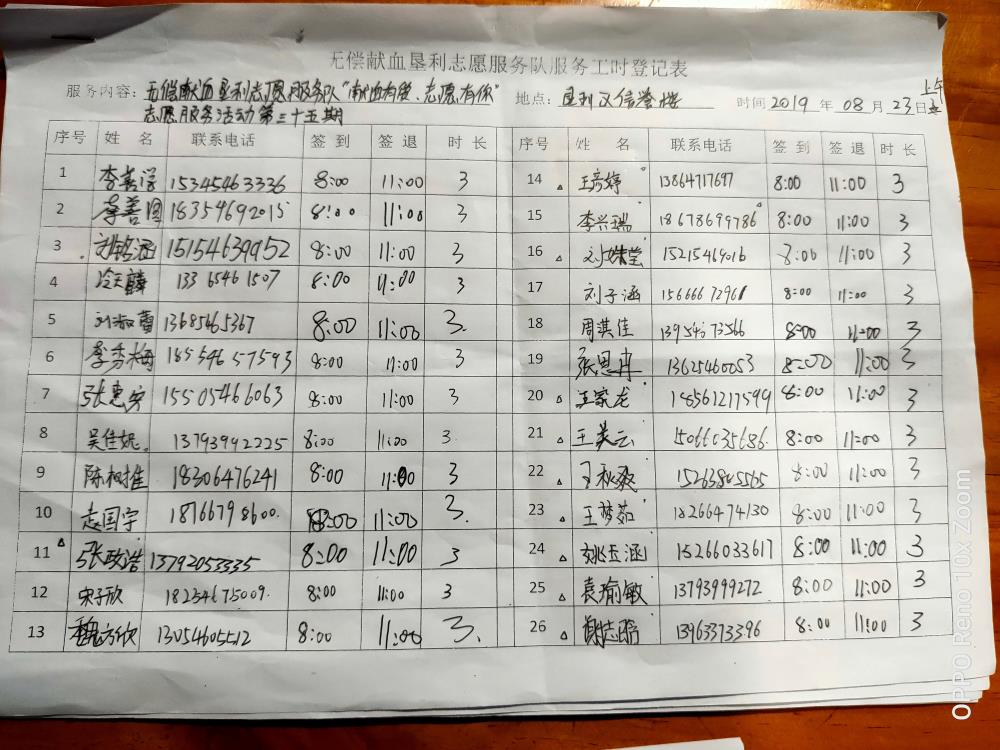 无偿献血垦利志愿服务队服务工时登记表
服务内容: 无偿献血垦利志愿服务队"献血有爱、志愿有你" 地点: 垦利区信誉楼 时间 2019 年 08 月 23 日 上午
志愿服务活动第三十五期
序号 姓 名 联系电话 签 到 签 退 时 长 序号 姓 名 联系电话 签 到 签 退 时 长
1 李善 15345463336 8:00 11:00 3 14 王彦婷 13864717697 8:00 11:00 3
2 李善国 18354692015 8:00 11:00 3 15 李兴瑞 18678699786 8:00 11:00 3
3 刘铭涵 15154639952 8:00 11:00 3 16 刘姝莹 15215469016 8:00 11:00 3
4 冷天 133 6546 1507 8:00 11:00 3 17 刘子涵 156666 72961 8:00 11:00 3
5 刘淑蕾 13685465367 8:00 11:00 3. 18 周淇佳 8:00 11:00 3
6 李秀梅 185546 57593 8:00 11:00 3 19 张恩冉 13625460053 8:00 11:00 3
7 张惠安 15505466063 8:00 11:00 3 20 王家龙 18561217599 8:00 11:00 3
8 吴佳妮. 13793992225 8:00 11:00 3. 21 王美云 15066035686. 8:00 11:00 3
9 陈相推 18306476241 8:00 11:00 3 22 王秋爽 8:00 11:00 3
10 志国宇 1876679 8600. 8:00 11:00 3. 23 王梦茹 18266474130 8:00 11:00 3
11 张政浩 13792053335 8:00 11:00 3 24 姚玉涵 15266033617 8:00 11:00 3
12 宋子欣 18254675009. 8:00 11:00 3 25 袁瑜敏 13793999272 8:00 11:00 3
13 魏方欣 13054605512 8:00 11:00 3. 26 谢志皓 13963373396 8:00 11:00 3
OPPO Reno 10x Zoom